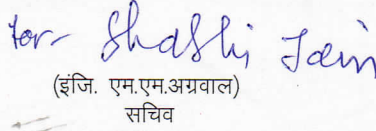 for Shashi Jain
(इंजि. एम.एम.अग्रवाल)
सचिव